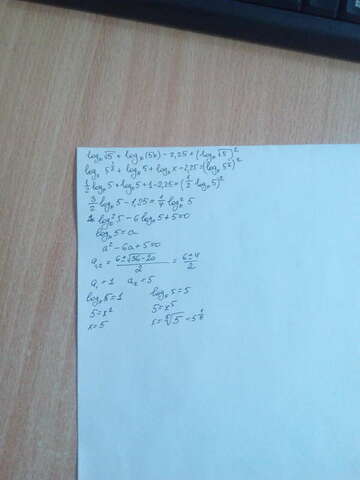 logₓ√5 + logₓ(5x) - 2,25 = (logₓ√5)²
logₓ 5^½ + logₓ5 + logₓx - 2,25 = (logₓ5^½)²
½ logₓ5 + logₓ5 + 1 - 2,25 = (½ logₓ5)²
3/2 logₓ5 - 1,25 = ¼ logₓ² 5
logₓ² 5 - 6 logₓ5 + 5 = 0
logₓ5 = a
a² - 6a + 5 = 0
a₁,₂ = (6 ± √36 - 20)/2 = (6 ± 4)/2
a₁ = 1 a₂ = 5
logₓ5 = 1 logₓ5 = 5
5 = x¹ 5 = x⁵
x = 5 x = ⁵√5 = 5^⅕